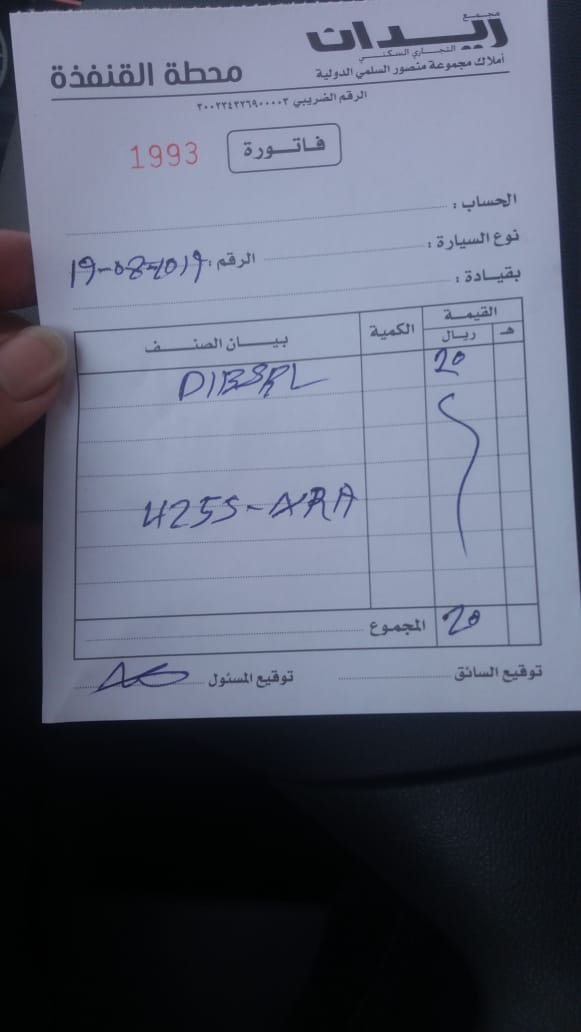 مجمع
ريدان
التجاري السكني
أملاك مجموعة منصور السلمي الدولية
محطة القنفذة
الرقم الضريبي ٣٠٠٢٢٤٣٢٦٩٠٠٠٠٣
فاتورة
1993
الحساب :
نوع السيارة : الرقم : 19-08-2019
بقيادة :
القيمة
هـ ريال الكمية بيان الصنف
20 DIESEL
4255-XRA
المجموع 20
توقيع السائق توقيع المسئول